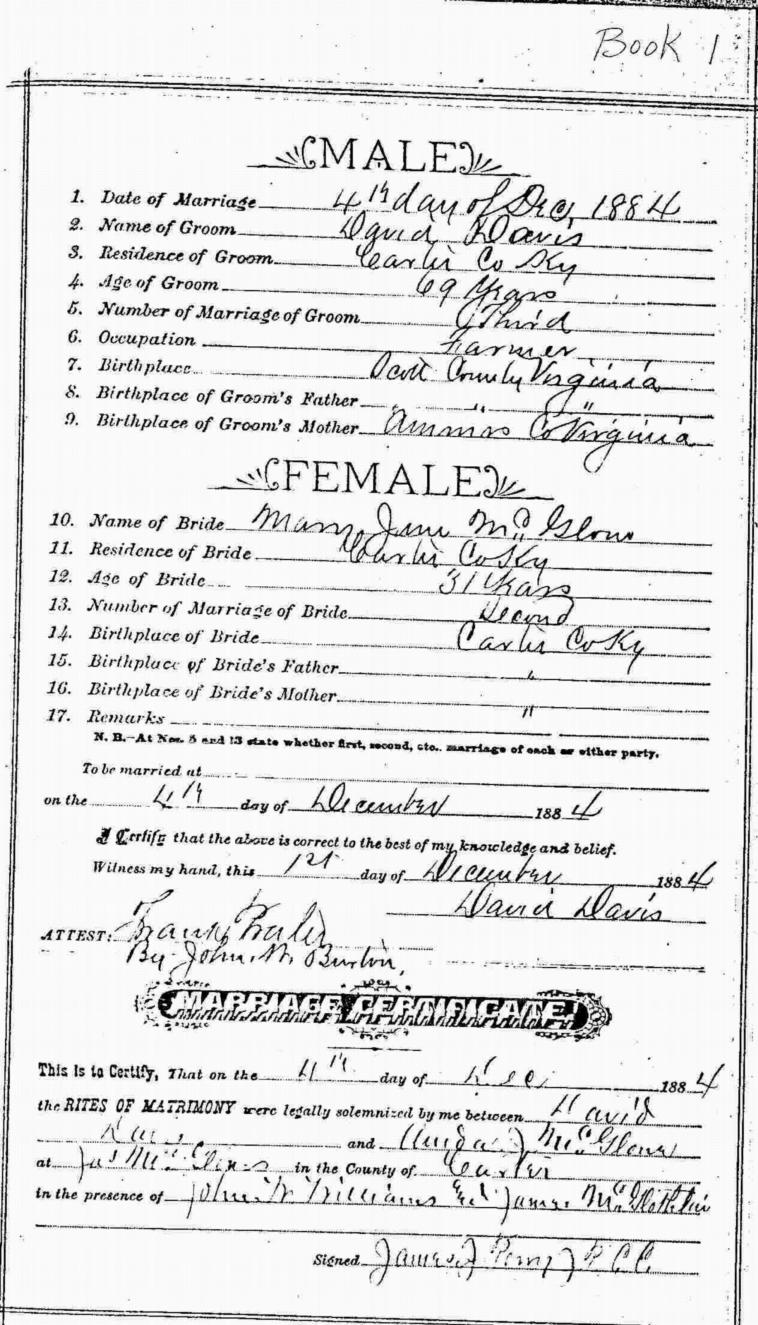 Book 1
MALE
1. Date of Marriage 4th day of Dec, 1884
2. Name of Groom David Davis
3. Residence of Groom Carter Co Ky
4. Age of Groom 69 Years
5. Number of Marriage of Groom Third
6. Occupation Farmer
7. Birthplace Scott County Virginia
8. Birthplace of Groom's Father " " "
9. Birthplace of Groom's Mother Co Virginia
FEMALE
10. Name of Bride Mary Jane McGlone
11. Residence of Bride Carter Co Ky
12. Age of Bride 31 Years
13. Number of Marriage of Bride Second
14. Birthplace of Bride Carter Co Ky
15. Birthplace of Bride's Father "
16. Birthplace of Bride's Mother "
17. Remarks
N. B.—At Nos. 5 and 13 state whether first, second, etc., marriage of each or either party.
To be married at
on the 4th day of December 1884
I Certify that the above is correct to the best of my knowledge and belief.
Witness my hand, this 1st day of December 1884
David Davis
ATTEST: Frank
By John W. Burton,
MARRIAGE CERTIFICATE!
This is to Certify, That on the 4th day of Dec 1884
the RITES OF MATRIMONY were legally solemnized by me between David
Davis and McGlone
at Jas in the County of Carter
in the presence of John W Williams and James
Signed James